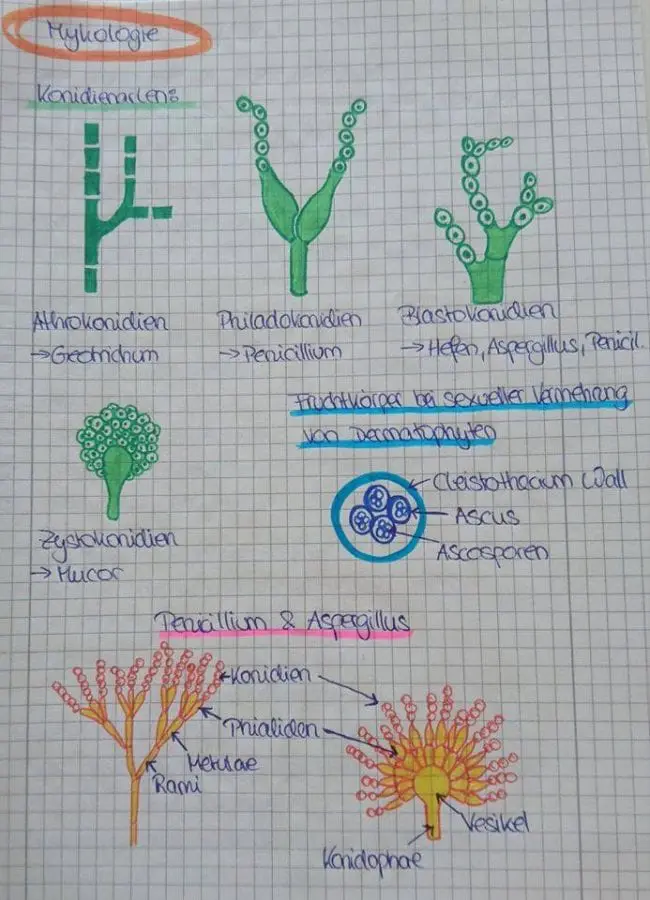 Mykologie
Konidienarten:
Athrokonidien
→ Geotrichum
Philadokonidien
→ Penicillium
Blastokonidien
→ Hefen, Aspergillus, Penicil.
Fruchtkörper bei sexueller Vermehrung
von Dermatophyten
Cleistothacium Wall
Ascus
Ascosporen
Zystokonidien
→ Mucor
Penicillium & Aspergillus
Konidien
Phialiden
Metulae
Rami
Vesikel
Konidophae